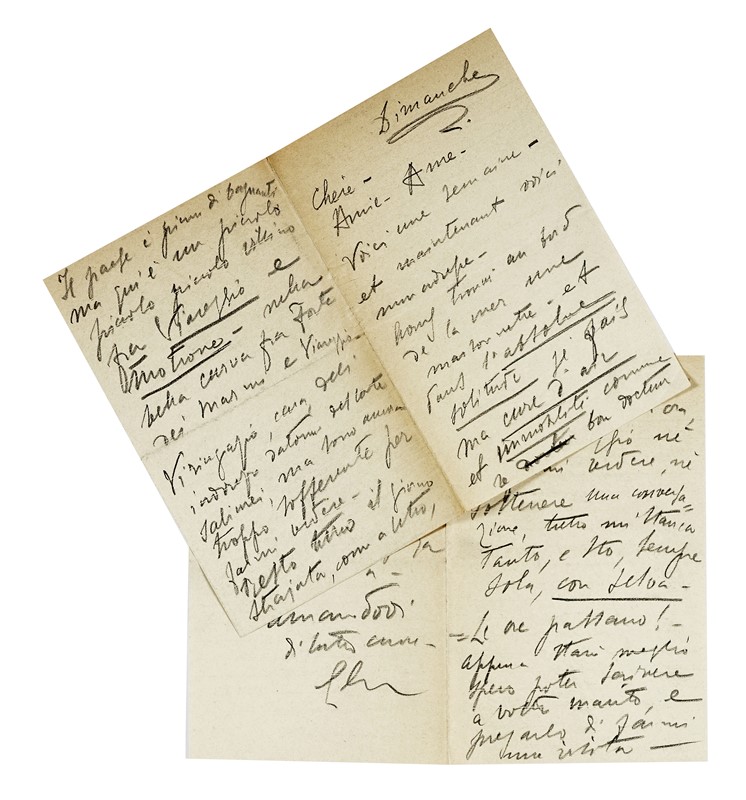 Dimanche
Chère -
Amie - Ame -
Voici une semaine -
et maintenant voici
mon adresse -
nous trouvé au bord
de la mer une
maisonnette - et
dans l'absolue
solitude je fais
ma cure d'air
et immobilité comme
le bon docteur
Il paese è pieno di bagnanti
ma qui è un piccolo
piccolo piccolo villino
fra Viareggio e
Motrone - nella
bella curva fra Forte
dei Marmi e Viareggio -
Vi ringrazio, cara, dell'
indirizzo datomi del conte
Salimei, ma sono ancora
troppo sofferente per
farmi vedere -
Resto tutto il giorno
sdrajata, com a letto,
ora
nè
mi vedere, nè
sostenere una conversa=
zione, tutto mi stanca
tanto, e sto, sempre
sola, con Selva -
= Le ore passano! -
appena starò meglio
spero poter scrivere
a vostro marito, e
pregarlo di farmi
una visita -
amandovi
di tutto cuore -